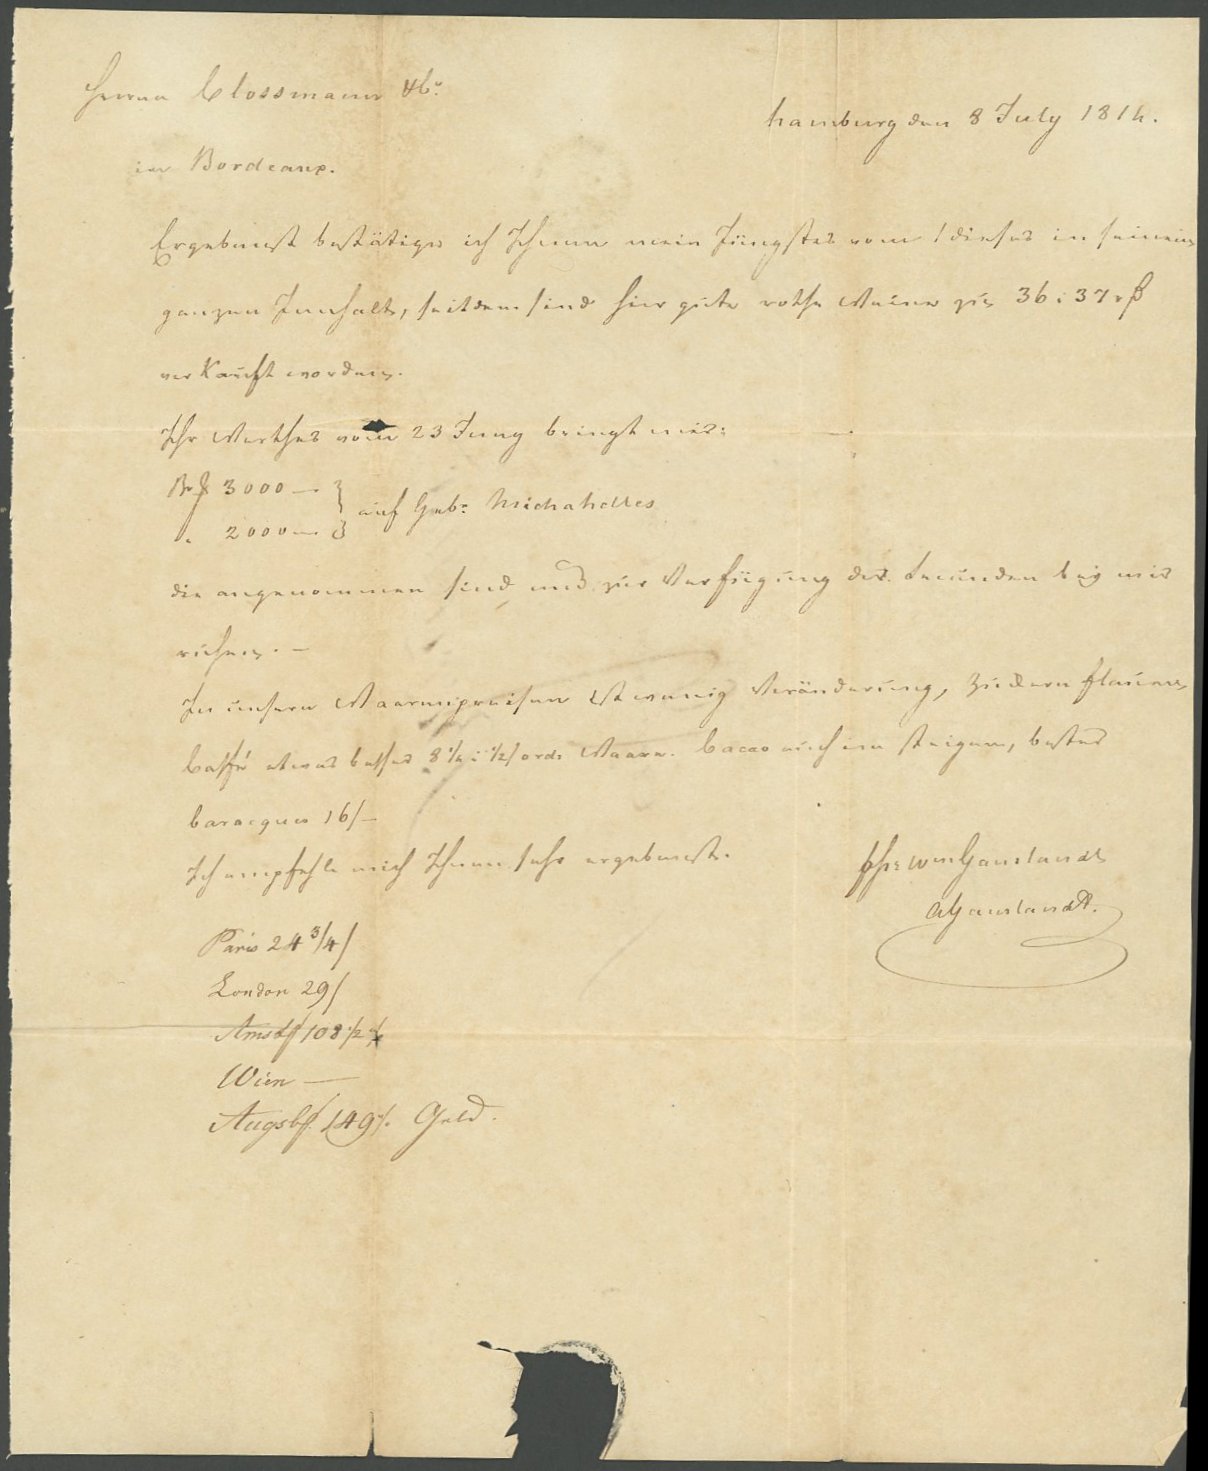 Herren Clossmann & Co.
Hamburg den 8 July 1814.
in Bordeaux.
Ergebenst bestätige ich Ihnen mein Jüngstes vom 1 dieses in seinem
ganzen Innhalt, seitdem sind hier gute rothe Weine zu 36 i 37 r ß
verkauft worden.
Ihr Werthes vom 23 Juny bringt mir:
3000 —
" 2000 — } auf Geb: Michahelles
die angenommen sind und zur Verfügung der Secunden bey mir
ruhen. —
In unsern Waarenpreisen ist wenig Veränderung, Zuckern flauer,
Caffé etwas besser 8 1/4 i 1/2 / ord: Waare. Cacao auch im steigen, bester
Caracques 16/—
Ich empfehle mich Ihnen sehr ergebenst.
Wm Ganslandt
Ganslandt.
Paris 24 3/4/
London 29/
Amsdf 108 1/2
Wien —
Augsbg. 149 %. Geld.